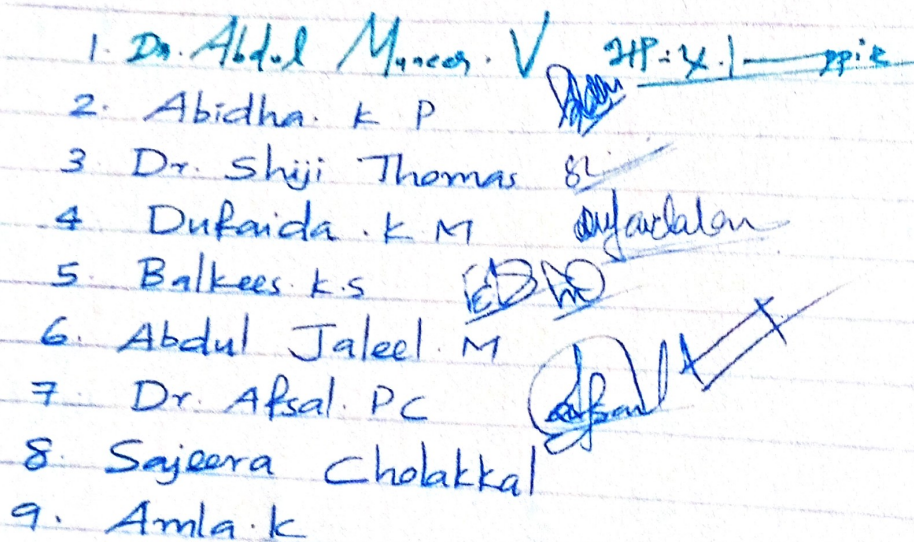 1. Dr. Abdul Muneer. V
2. Abidha. K P
3 Dr. Shiji Thomas
4 Dufaida. K M
5. Balkees. K.S
6. Abdul Jaleel. M
7. Dr. Afsal. PC
8. Sajeera Cholakkal
9. Amla. K